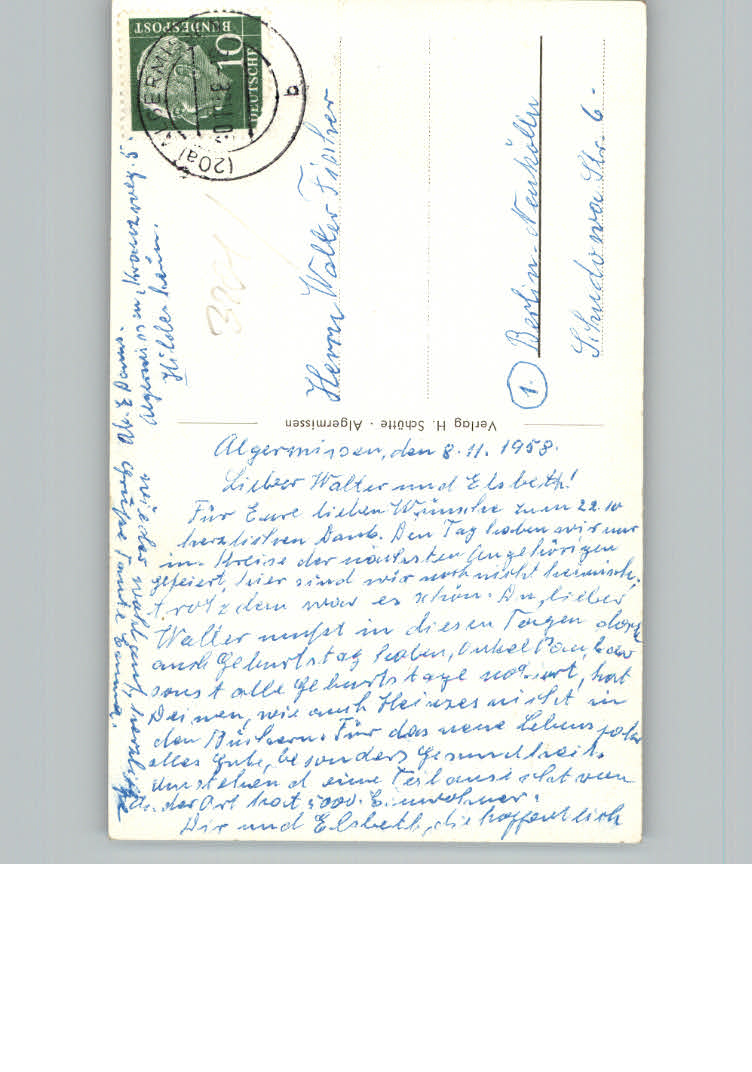 Algermissen, den 8.11.1958.
Lieber Walter und Elsbeth!
Für Eure lieben Wünsche zum 22.10
herzlichen Dank. Den Tag haben wir nur
im Kreise der nächsten Angehörigen
gefeiert, hier sind wir noch nicht heimisch,
trotzdem war es schön. Du, lieber
Walter mußt in diesen Tagen doch
auch Geburtstag haben, Onkel Paul, der
sonst alle Geburtstage notiert, hat
Deinen, wie auch Heinzes nicht in
den Büchern. Für das neue Lebensjahr
alles Gute, besonders Gesundheit.
Umstehend eine Teilansicht von
der Ort hat 5000 Einwohner.
Dir und Elsbeth, die hoffentlich
wieder wohlauf, herzliche
Grüße Tante Emma.
Algermissen, Kranzweg 5
Hildesheim.
Verlag H. Schütte - Algermissen
DEUTSCHE
BUNDESPOST
10
(20a) ALGERMISSEN
b
Herrn Walter Fischer
1.
Berlin-Neukölln
Schudowa Str. 6-